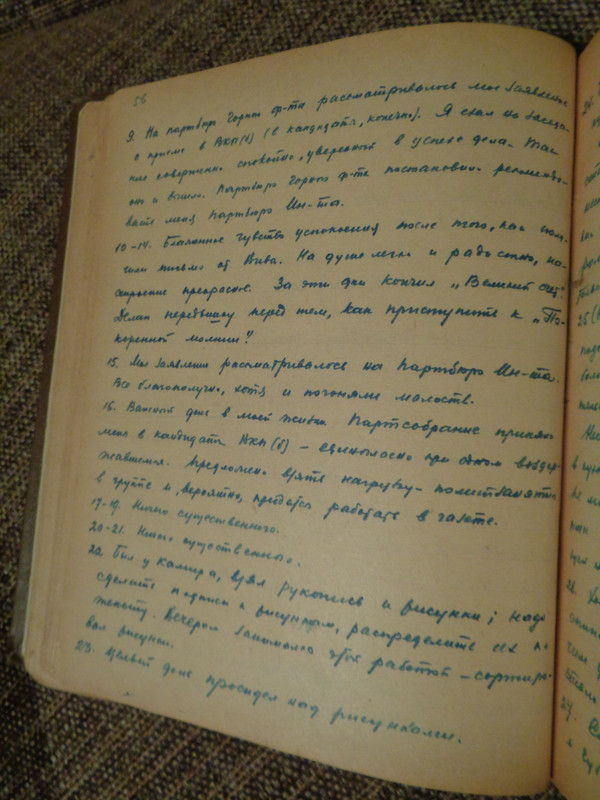 56
9. На партбюро Горного ф-та рассматривалось мое заявление
о приеме в ВКП(б) (в кандидаты, конечно). Я ехал на заседа-
ние совершенно спокойно, уверенный в успехе дела. Так
оно и вышло. Партбюро Горного ф-та постановило рекомендо-
вать меня партбюро Ин-та.
10-14. Блаженное чувство успокоения после того, как полу-
чили письмо от Вива. На душе легко и радостно, на-
строение прекрасное. За эти дни кончил „Великий
Делаю передышку перед тем, как приступить к „По-
коренной молнии".
15. Мое заявление рассматривалось на партбюро Ин-та.
Все благополучно, хотя и погоняли малость.
16. Важный день в моей жизни. Партсобрание приняло
меня в кандидаты ВКП(б) – единогласно при одном воздер-
жавшемся. Предложено взять нагрузку – политзанятия
в группе и, вероятно, придется работать в газете.
17-19. Ничего существенного.
20-21. Ничего существенного.
22. Был у взял рукопись и рисунки; надо
сделать подписи к рисункам, распределить их по
тексту. Вечером занимался этой работой – сортиро-
вал рисунки.
23. Целый день просидел над рисунками.